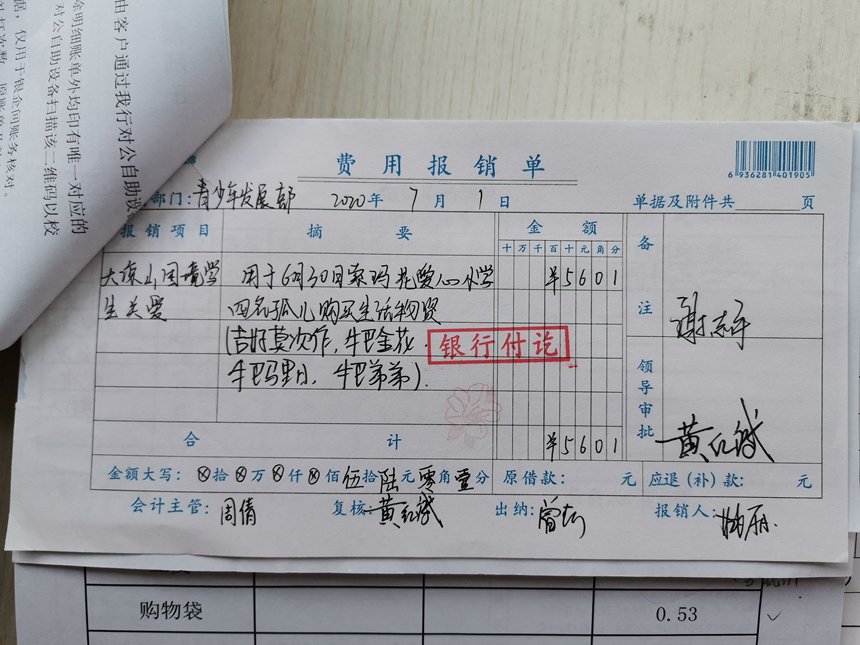 由客户通过我行对公自助设
明细账单外均印有唯一对应的
对公自助设备扫描该二维码以校
据，仅用于银企间账务核对。
费用报销单
6 936281 401905
部门：青少年发展部 2020年 7月 1日 单据及附件共 页
报销项目 摘要 金额 备注
十万千百十元角分
大凉山困境学 用于6月30日索玛花爱心小学 ¥5601
生关爱 四名孤儿购买生活物资
(吉好莫次作，牛巴金花，
牛巴玛里日，牛巴弟弟).
银行付讫
谢
领导审批
黄红斌
合计 ¥5601
金额大写：⊗拾⊗万⊗仟⊗佰伍拾陆元零角壹分 原借款： 元 应退（补）款： 元
会计主管：周倩 复核：黄红斌 出纳：曾 报销人：
购物袋 0.53